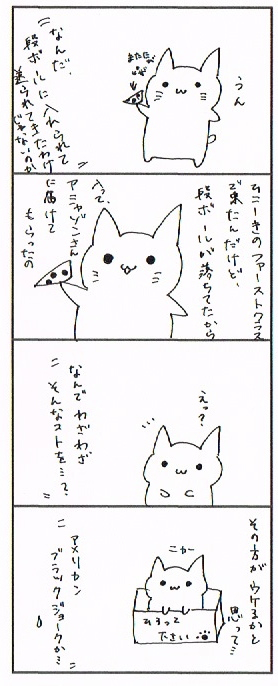 うん
またたび
"なんだ、
段ボールに入れられて
送られてきたわけ
じゃないのか"
ひこーきのファーストクラス
で来たんだけど、
段ボールが落ちてたから
入って、
アミャゾンさん
に届けて
もらったの
えっ?
…
"なんでわざわざ
そんなストを…?"
その方がウケるかと
思って…
ニカー
ひろって
下さい
"アメリカン
ブラックジョークか…"